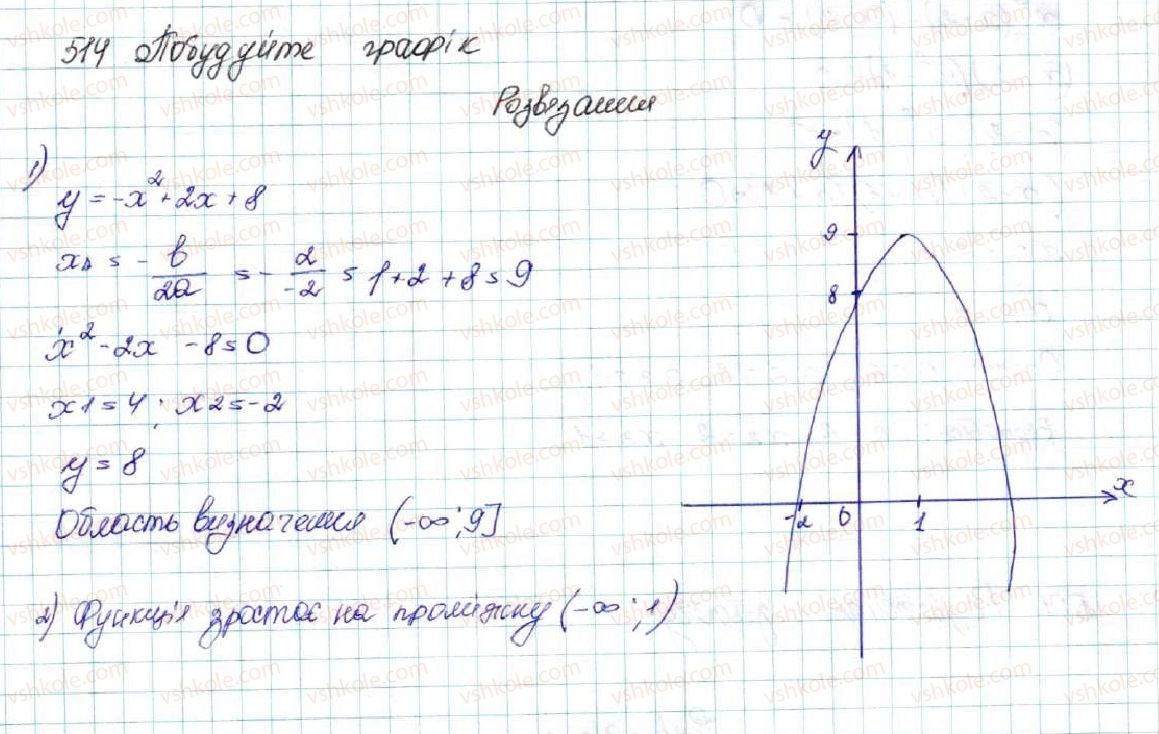 514 Побудуйте графік
Розвязання
1)
y = -x² + 2x + 8
x₀ = - b/2a = - 2/-2 = 1 + 2 + 8 = 9
x² - 2x - 8 = 0
x1 = 4; x2 = -2
y = 8
Область визначення (-∞; 9]
2) Функція зростає на проміжку (-∞; 1)
y
9
8
-2 0 1 x
vshkole.com